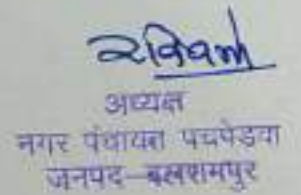 अध्यक्ष
नगर पंचायत पचपेडवा
जनपद-बलरामपुर